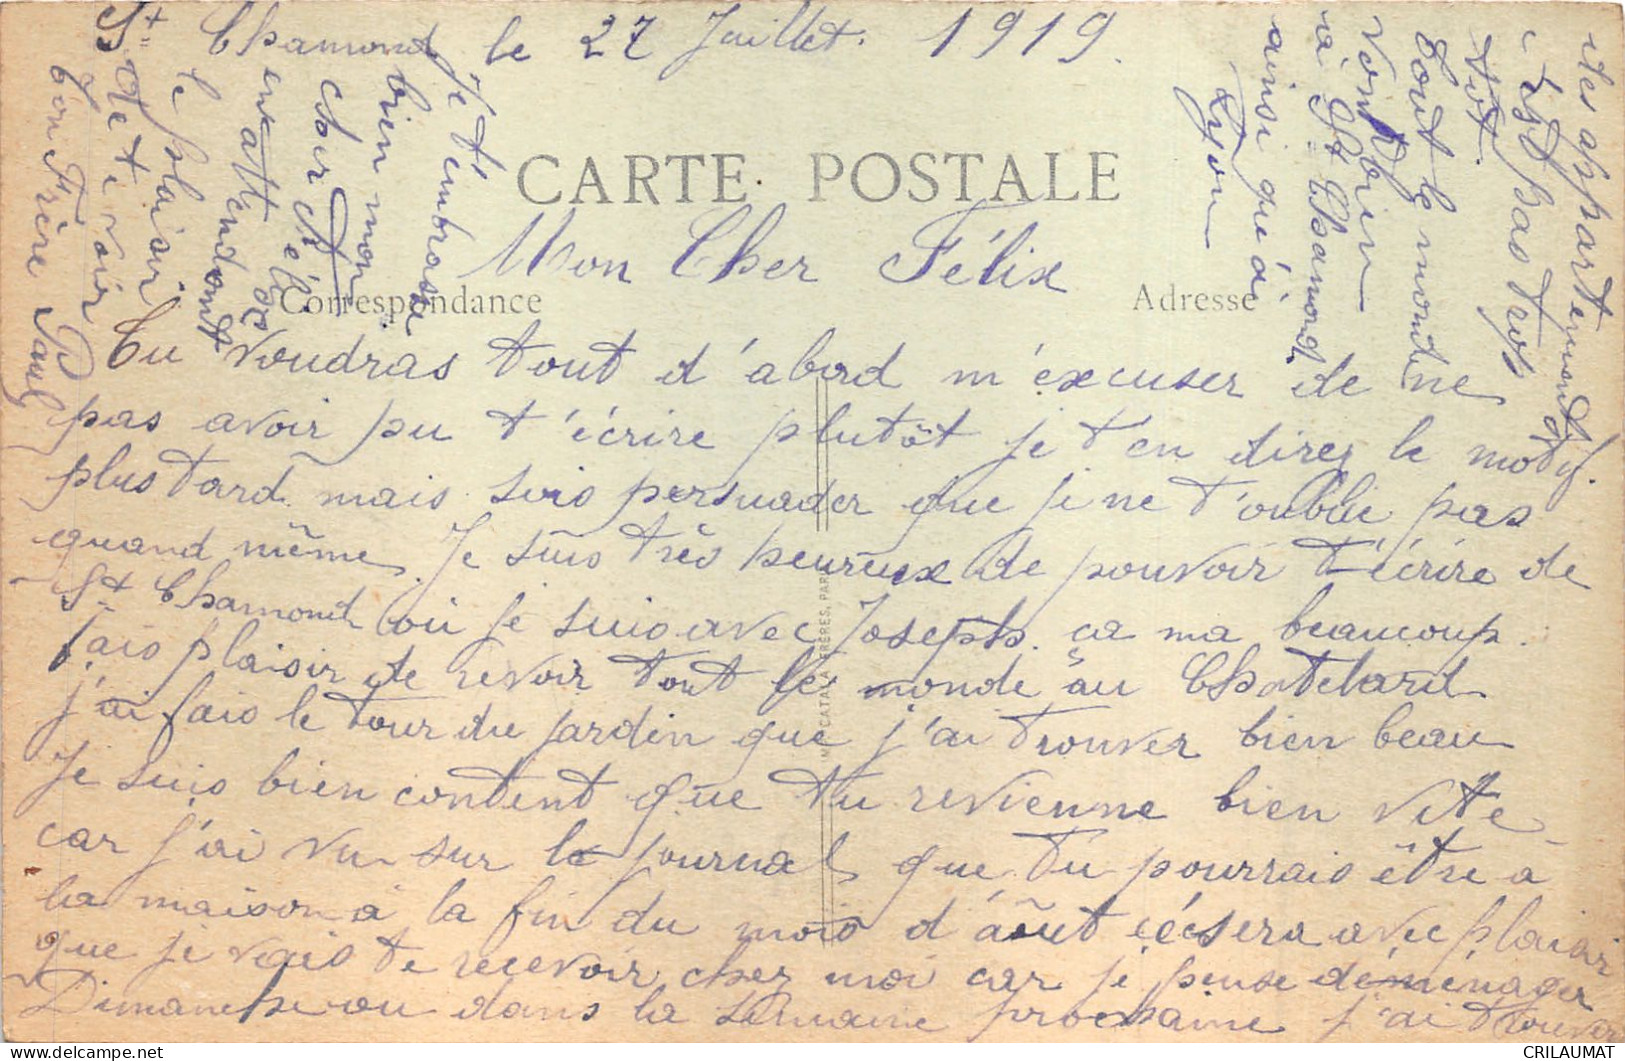 St Chamond le 27 Juillet 1919.
CARTE POSTALE
Mon Cher Félix
Correspondance
Adresse
Tu voudras tout d'abord m'excuser de ne
pas avoir pu t'écrire plutôt je t'en direz le motif.
plus tard. mais sois persuader que je ne t'oublie pas
quand même. Je suis très heureux de pouvoir t'écrire de
St Chamond où je suis avec Joseph. ça ma beaucoup
fais plaisir de revoir tout le monde au Chatelard
j'ai fais le tour du jardin que j'ai trouver bien beau
Je suis bien content que tu revienne bien vite
car j'ai vu sur le journal que tu pourrais être à
la maison à la fin du mois d'août ce sera avec plaisir
que je vais te recevoir chez moi car je pense déménager
Dimanche ou dans la semaine prochaine j'ai trouver
des appartements
c'est pas trop
tôt.
Tout le monde
vont bien
à St Chamond
ainsi que à
Lyon
Je t'embrasse
bien mon
cher Félix
en attendant
le plaisir
de te voir
ton Frère Paul
CRILAUMAT